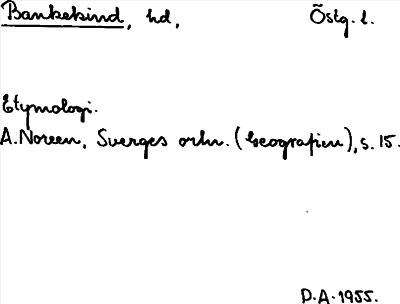 Bankekind, hd, Östg. l.
Etymologi.
A. Noreen, Sverges ortn. (Geografien), s. 15.
D.A. 1955.